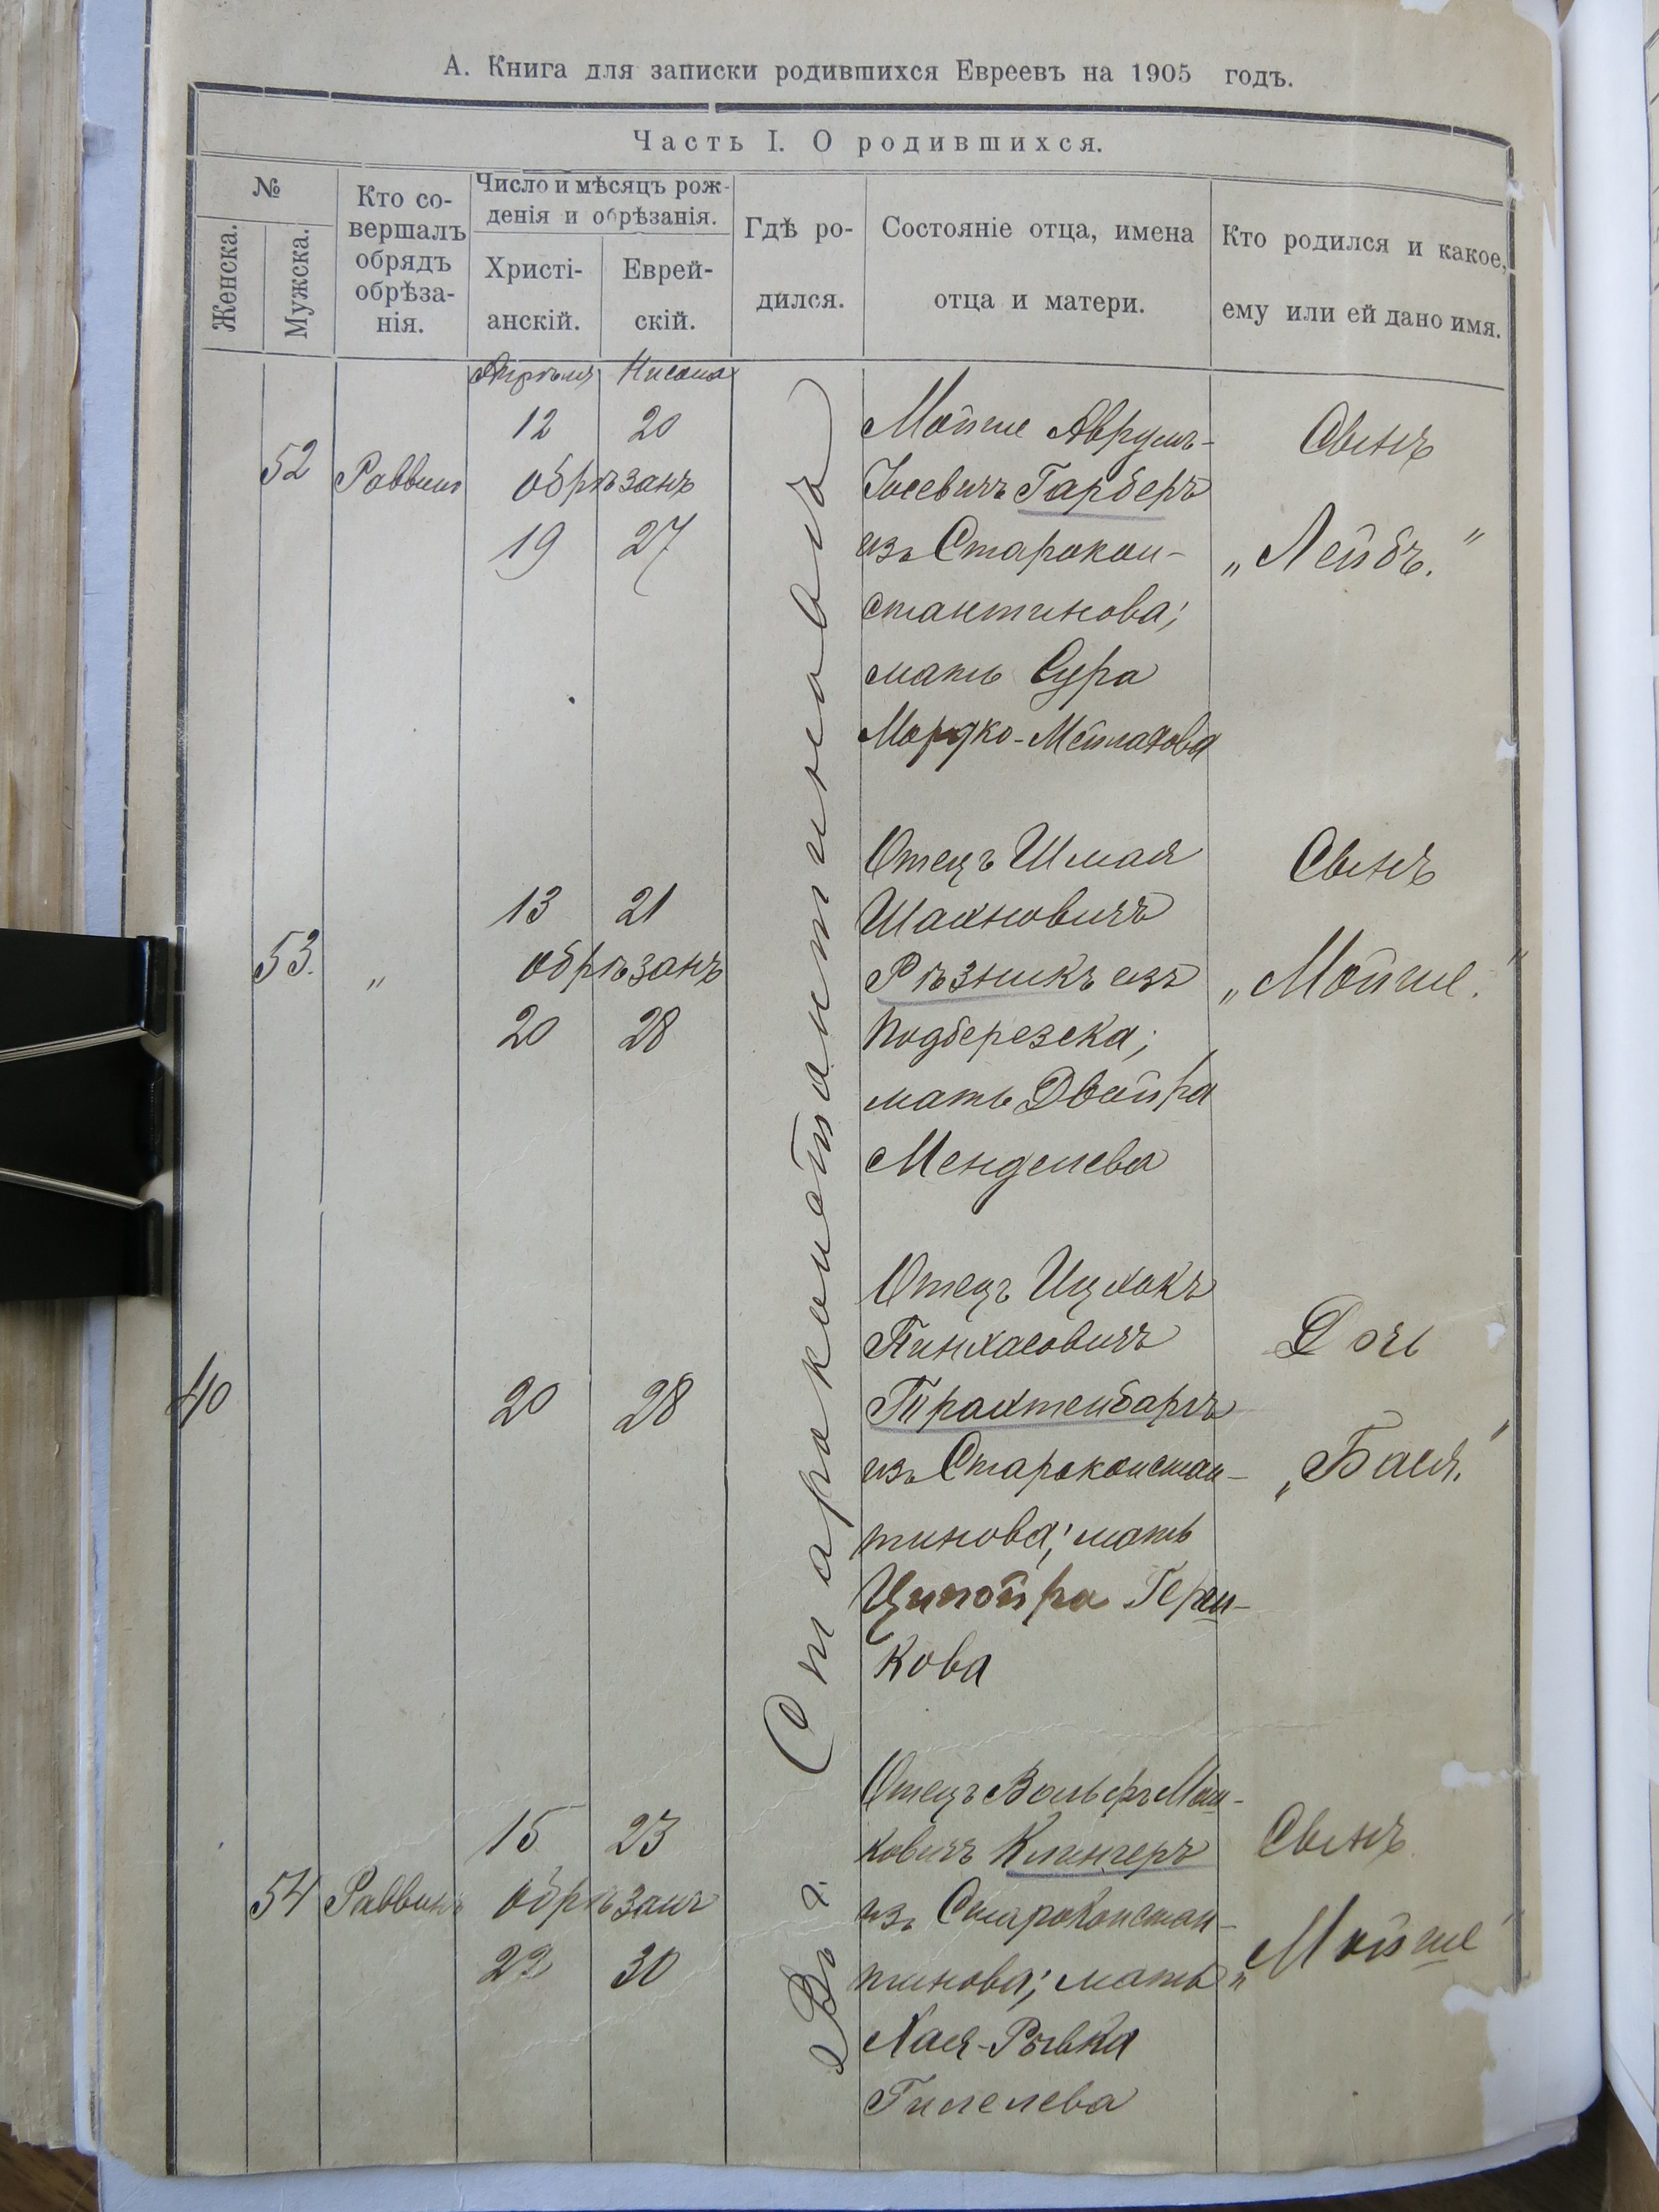 А. Книга для записки родившихся Евреевъ на 1905 годъ.
Часть I. О родившихся.
№
Женска.
Мужска.
Кто со-
вершалъ
обрядъ
обрѣза-
нія.
Число и мѣсяцъ рож-
денія и обрѣзанія.
Христі-
анскій.
Еврей-
скій.
Гдѣ ро-
дился.
Состояніе отца, имена
отца и матери.
Кто родился и какое,
ему или ей дано имя.
Апрѣля Нисана
Въ г. Староконстантиновѣ
52 Раввинъ
12 20
обрѣзанъ
19 27
Мойше Аврумъ-
Іосевичъ Гарберъ
изъ Старокон-
стантинова;
мать Сура
Мордко-
Сынъ
„Лейбъ."
53. „
13 21
обрѣзанъ
20 28
Отецъ Шмая
Шахновичъ
Рѣзникъ изъ
Подберезска;
мать Двойра
Менделева
Сынъ
„Мойше."
40
20 28
Отецъ Ицхокъ
Пинхасовичъ
Трахтенбаргъ
изъ Староконстан-
тинова; мать
Ципойра Герш-
кова
Дочь
„Бася."
54 Раввинъ
15 23
обрѣзанъ
22 30
Отецъ Вольфъ Мош-
ковичъ Клингеръ
изъ Староконстан-
тинова; мать
Хая-Рывка
Гилелева
Сынъ
„Мойше"